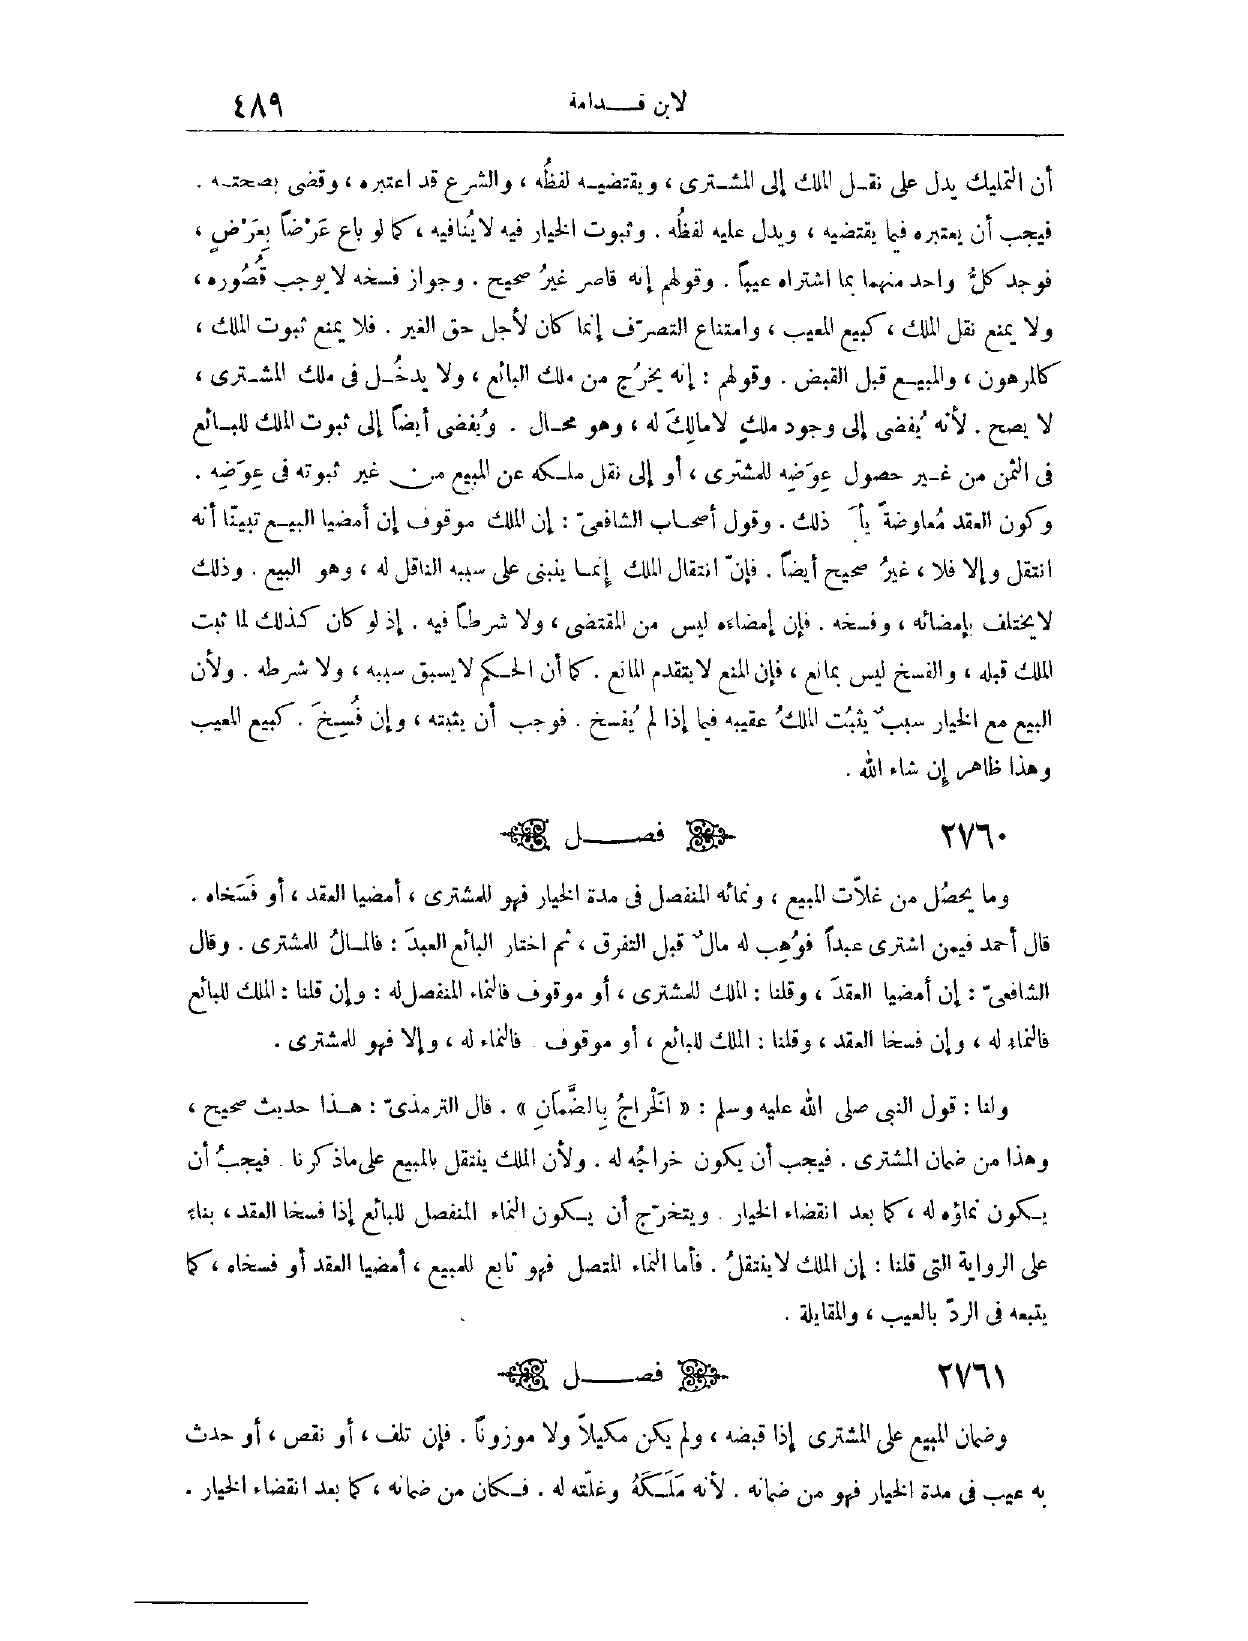 ٤٨٩
لابن قـدامة
أن التمليك يدل على نقـل الملك إلى المشـترى ، ويقتضيـه لفظُه ، والشرع قد اعتبره ، وقضى بصحتـه .
فيجب أن يعتبره فيما يقتضيه ، ويدل عليه لفظُه . وثبوت الخيار فيه لا يُنافيه ، كما لو باع عَرْضاً بِعَرْضٍ ،
فوجد كلُّ واحد منهما بما اشتراه عيباً . وقولهم إنه قاصر غيرُ صحيح . وجواز فسخه لا يوجب قُصُوره ،
ولا يمنع نقل الملك ، كبيع المعيب ، وامتناع التصرّف إنما كان لأجل حق الغير . فلا يمنع ثبوت الملك ،
كالمرهون ، والمبيـع قبل القبض . وقولهم : إنه يخرُج من ملك البائع ، ولا يدخُـل فى ملك المشـترى ،
لا يصح . لأنه يُفضى إلى وجود ملكٍ لامالِكَ له ، وهو محـال . ويُفضى أيضاً إلى ثبوت الملك للبـائع
فى الثمن من غـير حصول عِوَضِه للمشترى ، أو إلى نقل ملـكه عن المبيع من غير ثبوته فى عِوَضِه .
وكون العقد مُعاوضةً يأبَى ذلك . وقول أصحـاب الشافعىّ : إن الملك موقوف إن أمضيا البيـع تبيّنّا أنه
انتقل وإلا فلا ، غيرُ صحيح أيضاً . فإنّ انتقال الملك إنمـا ينبنى على سببه الناقل له ، وهو البيع . وذلك
لا يختلف بإمضائه ، وفسخه . فإن إمضاءه ليس من المقتضى ، ولا شرطـاً فيه . إذ لو كان كـذلك لما ثبت
الملك قبله ، والفسخ ليس بمانع ، فإن المنع لا يتقدم المانع . كما أن الحـكم لا يسبق سببه ، ولا شرطه . ولأن
البيع مع الخيار سببٌ يثبُت الملكُ عقيبه فيما إذا لم يُفسخ . فوجب أن يثبته ، وإن فُسِخَ . كبيع المعيب
وهذا ظاهر إن شاء الله .
٢٧٦٠ فصـــل
وما يحصُل من غلاّت المبيع ، ونمائه المنفصل فى مدة الخيار فهو للمشترى ، أمضيا العقد ، أو فَسَخاه .
قال أحمد فيمن اشترى عبداً فوُهِب له مالٌ قبل التفرق ، ثم اختار البائع العبدَ : فالمـالُ للمشترى . وقال
الشافعىّ : إن أمضيا العقدَ ، وقلنا : الملك للمشترى ، أو موقوف فالنماء المنفصل له : وإن قلنا : الملك للبائع
فالنماء له ، وإن فسخا العقد ، وقلنا : الملك للبائع ، أو موقوف . فالنماء له ، وإلا فهو للمشترى .
ولنا : قول النبى صلى الله عليه وسلم : « الْخَراجُ بِالضَّمَانِ » . قال الترمذىّ : هـذا حديث صحيح ،
وهذا من ضمان المشترى . فيجب أن يكون خراجُه له . ولأن الملك ينتقل بالمبيع على ماذكرنا . فيجبُ أن
يـكون نماؤه له ، كما بعد انقضاء الخيار . ويتخرّج أن يـكون النماء المنفصل للبائع إذا فسخا العقد ، بناء
على الرواية التى قلنا : إن الملك لا ينتقلُ . فأما النماء المتصل فهو تابع للمبيع ، أمضيا العقد أو فسخاه ، كما
يتبعه فى الردّ بالعيب ، والمقايلة .
٢٧٦١ فصـــل
وضمان المبيع على المشترى إذا قبضه ، ولم يكن مكيلاً ولا موزوناً . فإن تلف ، أو نقص ، أو حدث
به عيب فى مدة الخيار فهو من ضمانه . لأنه مَلَـكَهُ وغلّته له . فـكان من ضمانه ، كما بعد انقضاء الخيار .